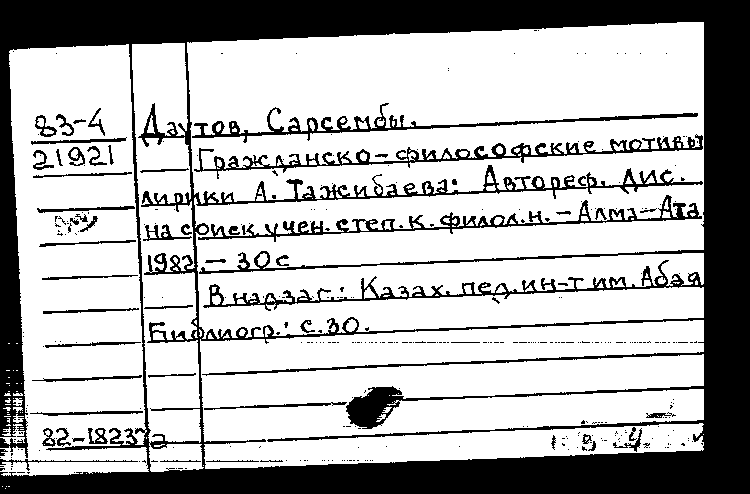 83-4 Даутов, Сарсембы.
21921 Гражданско-философские мотивы
лирики А. Тажибаева: Автореф. дис.
на соиск. учен. степ. к. филол. н. - Алма-Ата,
1982. - 30 с
В надзаг.: Казах. пед. ин-т им. Абая
Библиогр.: с. 30.
82-18237а